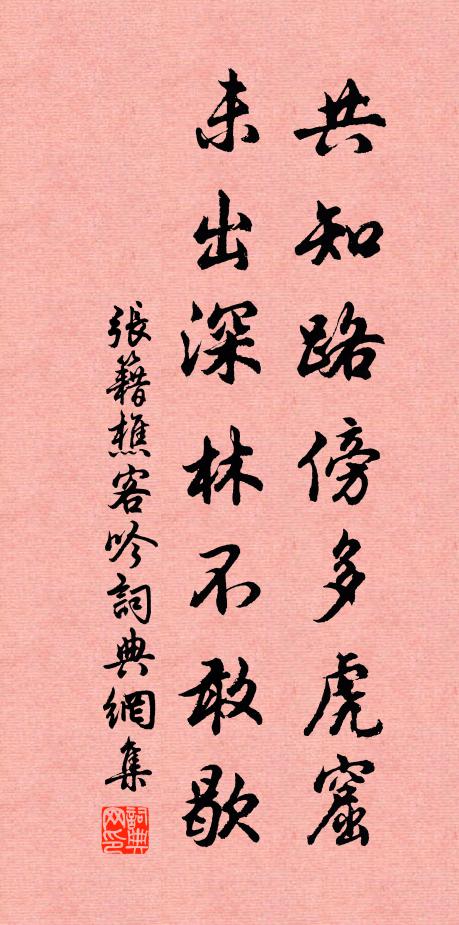 共知路傍多虎窟
未出深林不敢歇
張籍樵客吟詞典網集
詞典网印